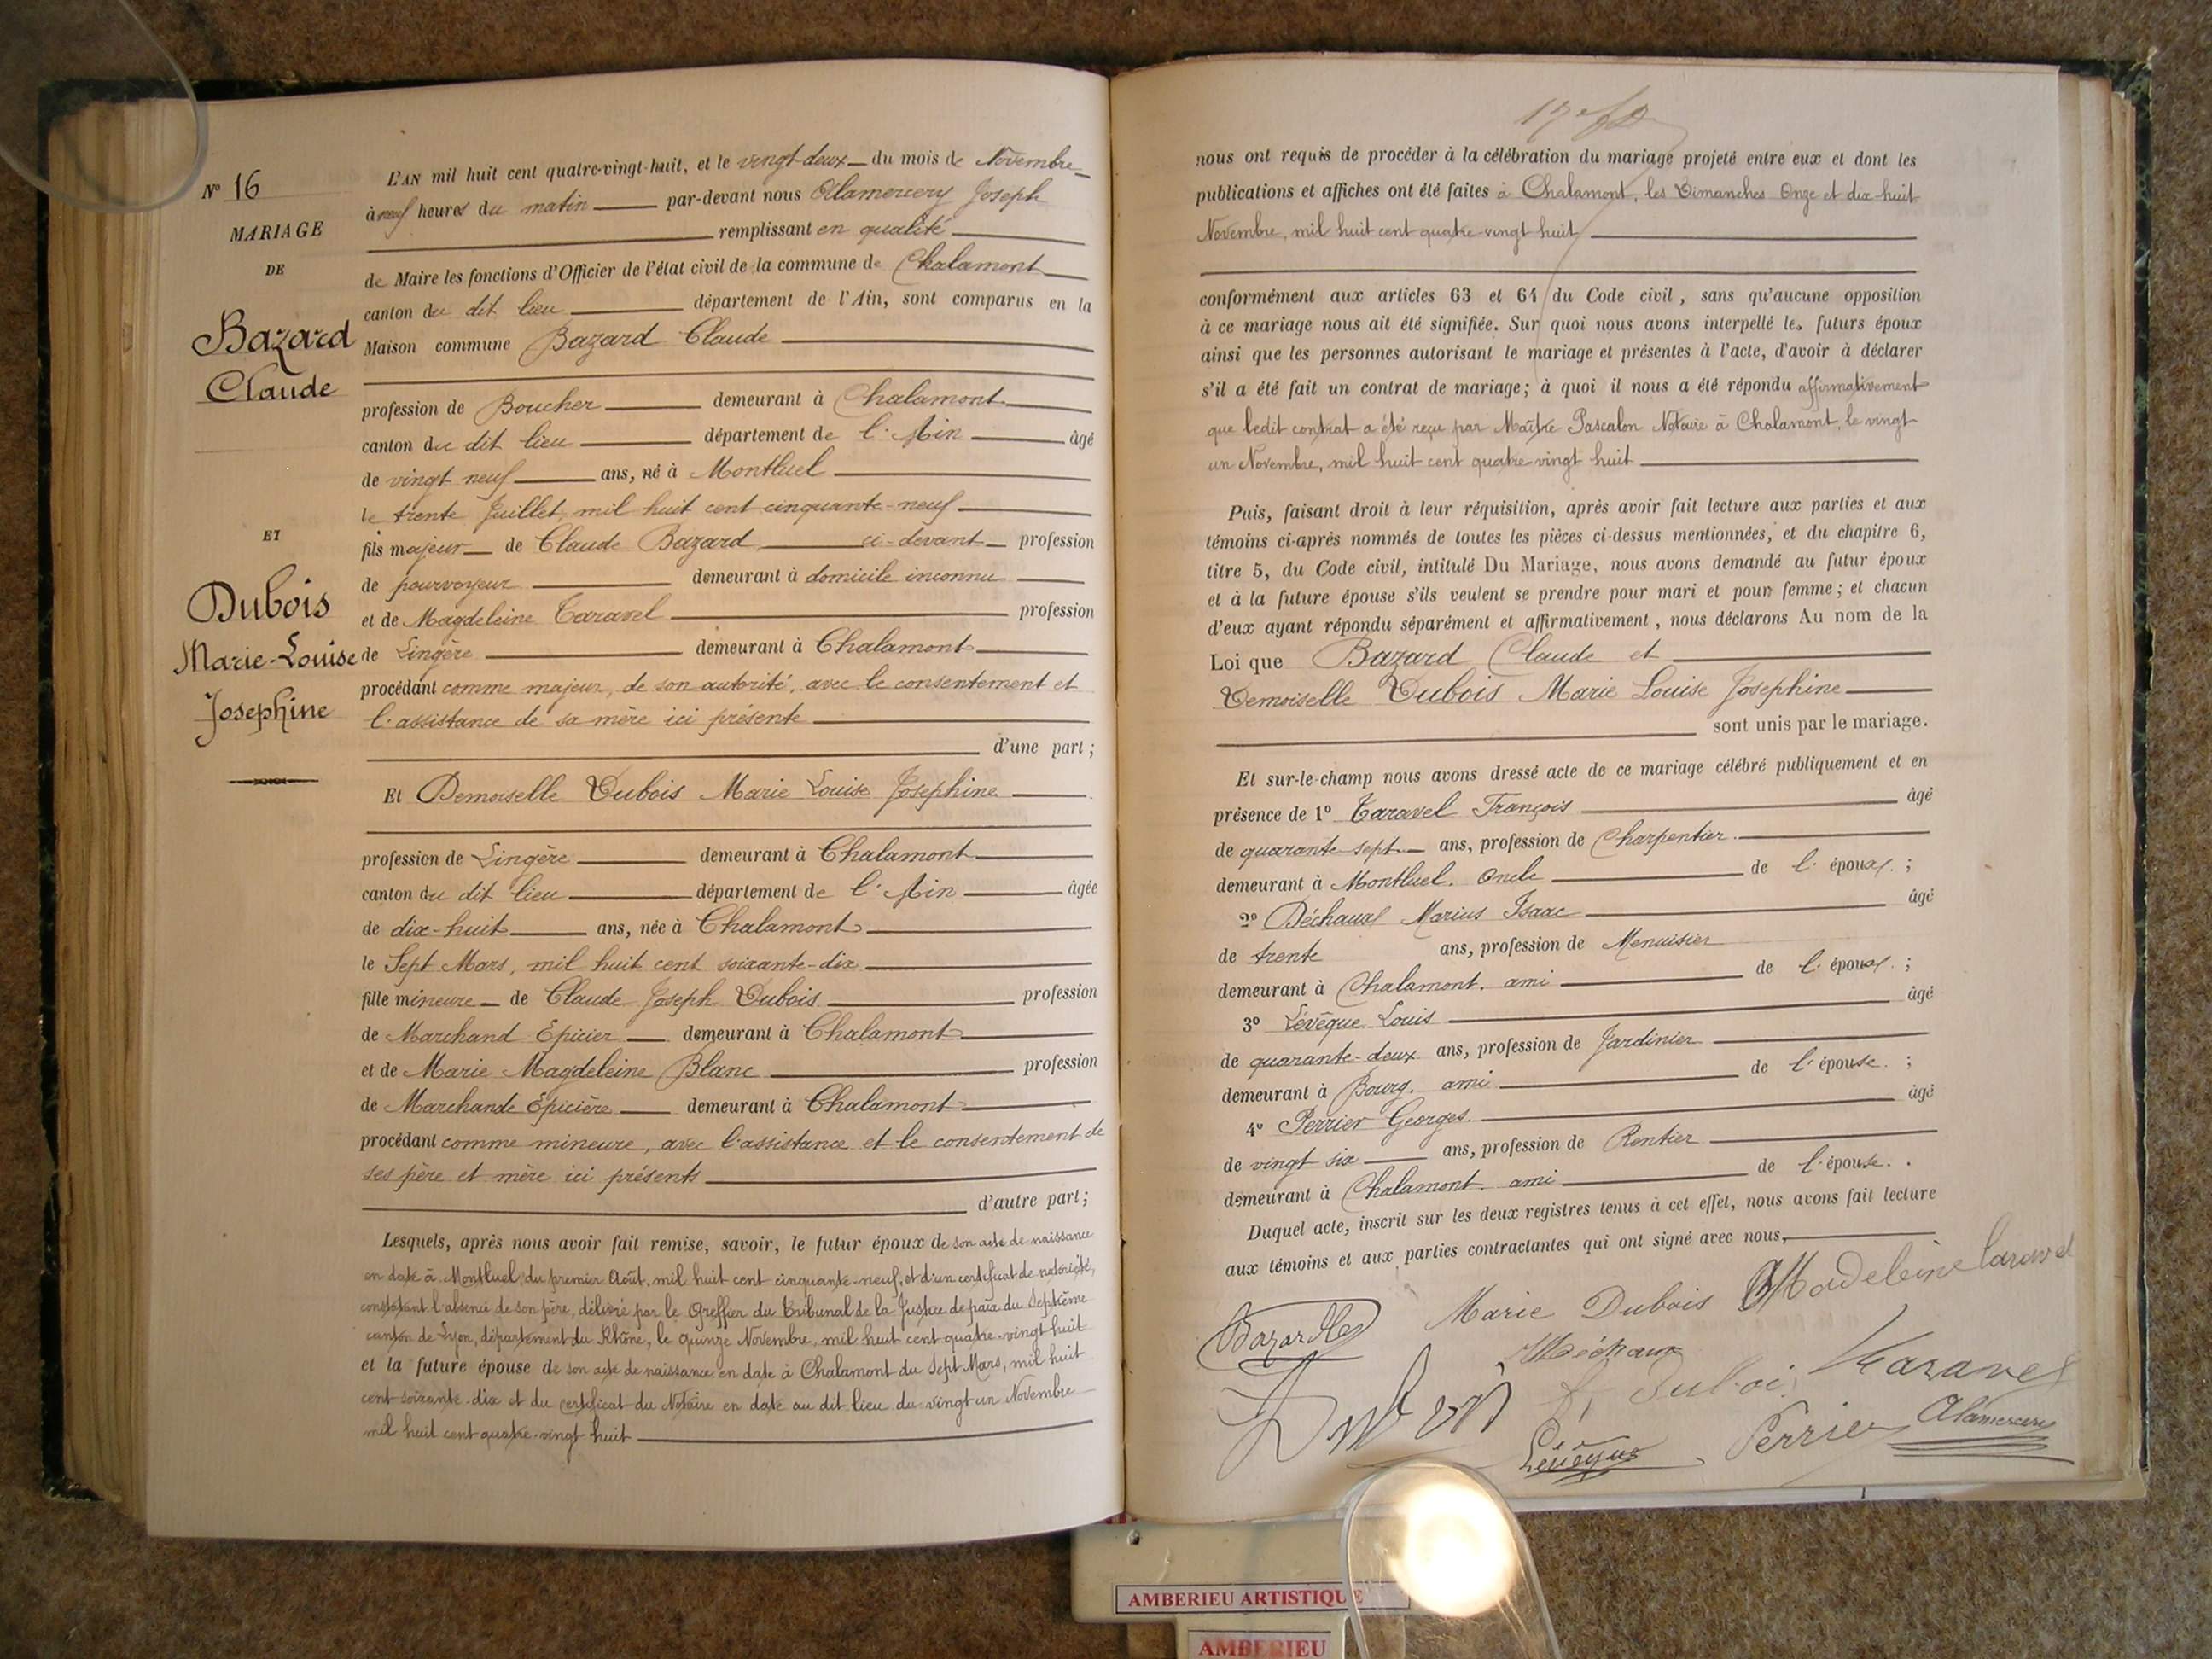 Nº 16
MARIAGE
DE
Bazard
Claude
ET
Dubois
Marie-Louise
Josephine
L'AN mil huit cent quatre-vingt-huit, et le vingt-deux du mois de Novembre
à neuf heures du matin par-devant nous Alamercery Joseph
remplissant en qualité
de Maire les fonctions d'Officier de l'état civil de la commune de Chalamont
canton du dit lieu département de l'Ain, sont comparus en la
Maison commune Bazard Claude
profession de Boucher demeurant à Chalamont
canton du dit lieu département de l'Ain âgé
de vingt neuf ans, né à Montluel
le trente Juillet, mil huit cent cinquante-neuf
fils majeur de Claude Bazard ci-devant profession
de pourvoyeur demeurant à domicile inconnu
et de Magdeleine Taravel profession
de Lingère demeurant à Chalamont
procédant comme majeur, de son autorité, avec le consentement et
l'assistance de sa mère ici présente
d'une part ;
Et Demoiselle Dubois Marie Louise Josephine
profession de Lingère demeurant à Chalamont
canton du dit lieu département de l'Ain âgée
de dix-huit ans, née à Chalamont
le Sept Mars, mil huit cent soixante-dix
fille mineure de Claude Joseph Dubois profession
de Marchand Epicier demeurant à Chalamont
et de Marie Magdeleine Blanc profession
de Marchande Epicière demeurant à Chalamont
procédant comme mineure, avec l'assistance et le consentement de
ses père et mère ici présents
d'autre part ;
Lesquels, après nous avoir fait remise, savoir, le futur époux de son acte de naissance
en date à Montluel, du premier Août, mil huit cent cinquante-neuf, et d'un certificat de notoriété,
constatant l'absence de son père, délivré par le Greffier du Tribunal de la Justice de paix du Septième
canton de Lyon, département du Rhône, le quinze Novembre, mil huit cent quatre-vingt huit
et la future épouse de son acte de naissance en date à Chalamont du Sept Mars, mil huit
cent soixante-dix et du certificat du Notaire en date au dit lieu du vingt un Novembre
mil huit cent quatre-vingt huit
nous ont requis de procéder à la célébration du mariage projeté entre eux et dont les
publications et affiches ont été faites à Chalamont, les Dimanches Onze et dix huit
Novembre, mil huit cent quatre-vingt huit
conformément aux articles 63 et 64 du Code civil, sans qu'aucune opposition
à ce mariage nous ait été signifiée. Sur quoi nous avons interpellé les futurs époux
ainsi que les personnes autorisant le mariage et présentes à l'acte, d'avoir à déclarer
s'il a été fait un contrat de mariage ; à quoi il nous a été répondu affirmativement
que ledit contrat a été reçu par Maître Pascalon Notaire à Chalamont, le vingt
un Novembre, mil huit cent quatre vingt huit
Puis, faisant droit à leur réquisition, après avoir fait lecture aux parties et aux
témoins ci-après nommés de toutes les pièces ci-dessus mentionnées, et du chapitre 6,
titre 5, du Code civil, intitulé Du Mariage, nous avons demandé au futur époux
et à la future épouse s'ils veulent se prendre pour mari et pour femme ; et chacun
d'eux ayant répondu séparément et affirmativement, nous déclarons Au nom de la
Loi que Bazard Claude et
Demoiselle Dubois Marie Louise Josephine
sont unis par le mariage.
Et sur-le-champ nous avons dressé acte de ce mariage célébré publiquement et en
présence de 1º Taravel François âgé
de quarante-sept ans, profession de Charpentier
demeurant à Montluel. Oncle de l'époux ;
2º Déchaux Marius Isaac âgé
de trente ans, profession de Menuisier
demeurant à Chalamont. ami de l'époux ;
3º Lévêque Louis âgé
de quarante-deux ans, profession de Jardinier
demeurant à Bourg. ami de l'épouse ;
4º Perrier Georges âgé
de vingt six ans, profession de Rentier
demeurant à Chalamont. ami de l'épouse.
Duquel acte, inscrit sur les deux registres tenus à cet effet, nous avons fait lecture
aux témoins et aux parties contractantes qui ont signé avec nous,
Marie Dubois Madeleine Taravel
Déchaux
Dubois Taravel
Dubois
Lévêque Perrier Alamercery
AMBERIEU ARTISTIQUE
AMBERIEU